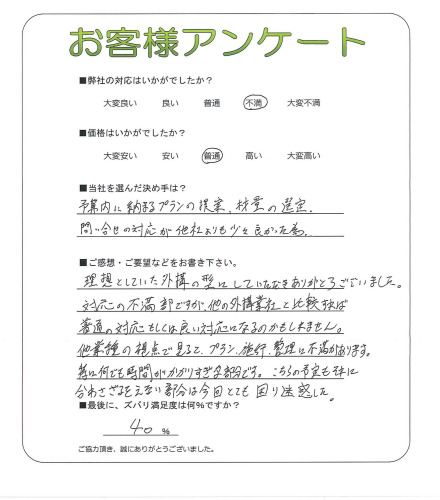 お客様アンケート
■弊社の対応はいかがでしたか?
大変良い 良い 普通 不満 大変不満
■価格はいかがでしたか?
大変安い 安い 普通 高い 大変高い
■当社を選んだ決め手は?
予算内に納まるプランの提案、材量の選定、
問い合せの対応が他社よりも少々良かった為。
■ご感想・ご要望などをお書き下さい。
理想としていた外構の型にしていただきありがとうございました。
対応の不満部ですが、他の外構業社と比較すれば
普通の対応もしくは良い対応になるのかもしれません。
他業種の視点で見ると、プラン、施行、整理に不満があります。
特に何でも時間がかかりすぎる部分です。こちらの予定も
合わさざるをえない部分は今回とても困り迷惑した。
■最後に、ズバリ満足度は何%ですか?
40 %
ご協力頂き、誠にありがとうございました。